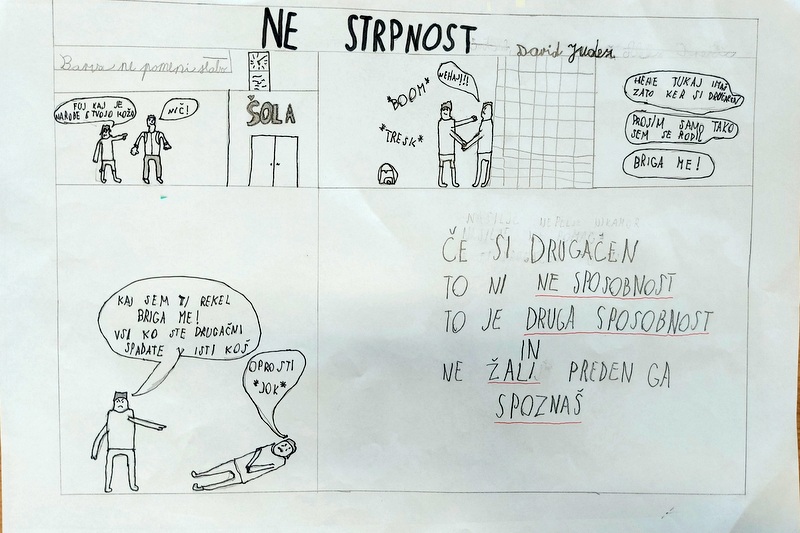 NE STRPNOST
David Judež
Barva ne pomeni slabo
FOJ KAJ JE
NAROBE S TVOJO KOŽO
NIČ!
ŠOLA
*BOOM*
*TRESK*
NEHAJ!!!
HEHE TUKAJ IMAŠ
ZATO KER SI DRUGAČEN
PROSIM SAMO TAKO
SEM SE RODIL
BRIGA ME!
KAJ SEM TI REKEL
BRIGA ME!
VSI KO STE DRUGAČNI
SPADATE V ISTI KOŠ
OPROSTI
*JOK*
ČE SI DRUGAČEN
TO NI NE SPOSOBNOST
TO JE DRUGA SPOSOBNOST
IN
NE ŽALI PREDEN GA
SPOZNAŠ